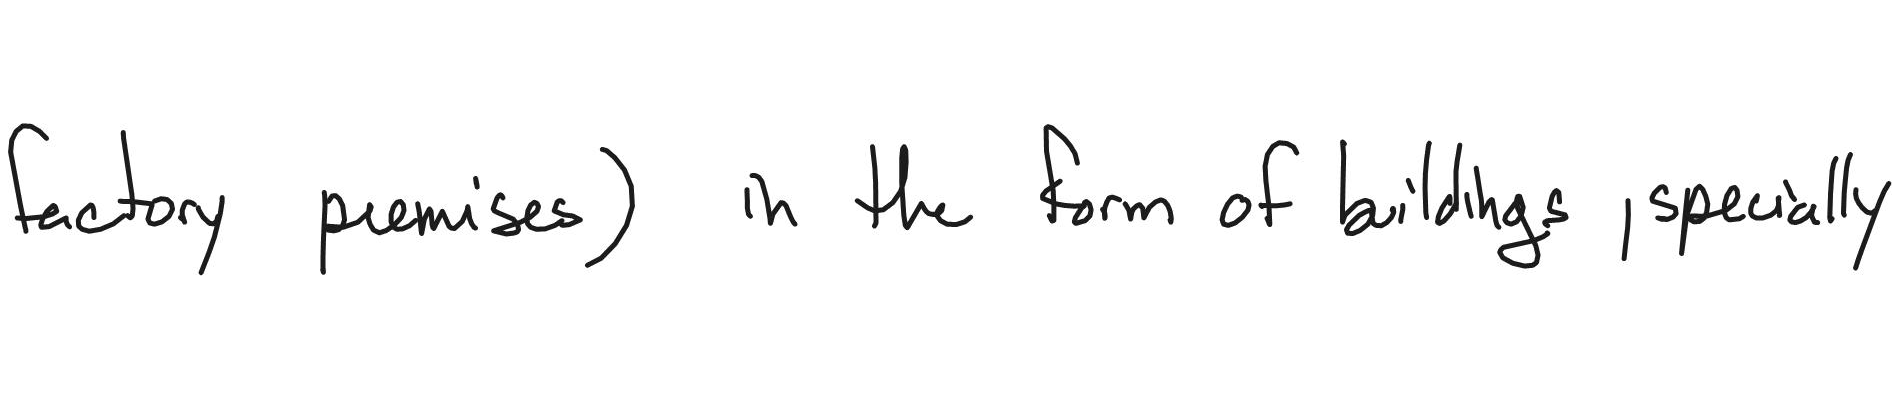 factory premises) in the form of buildings , specially